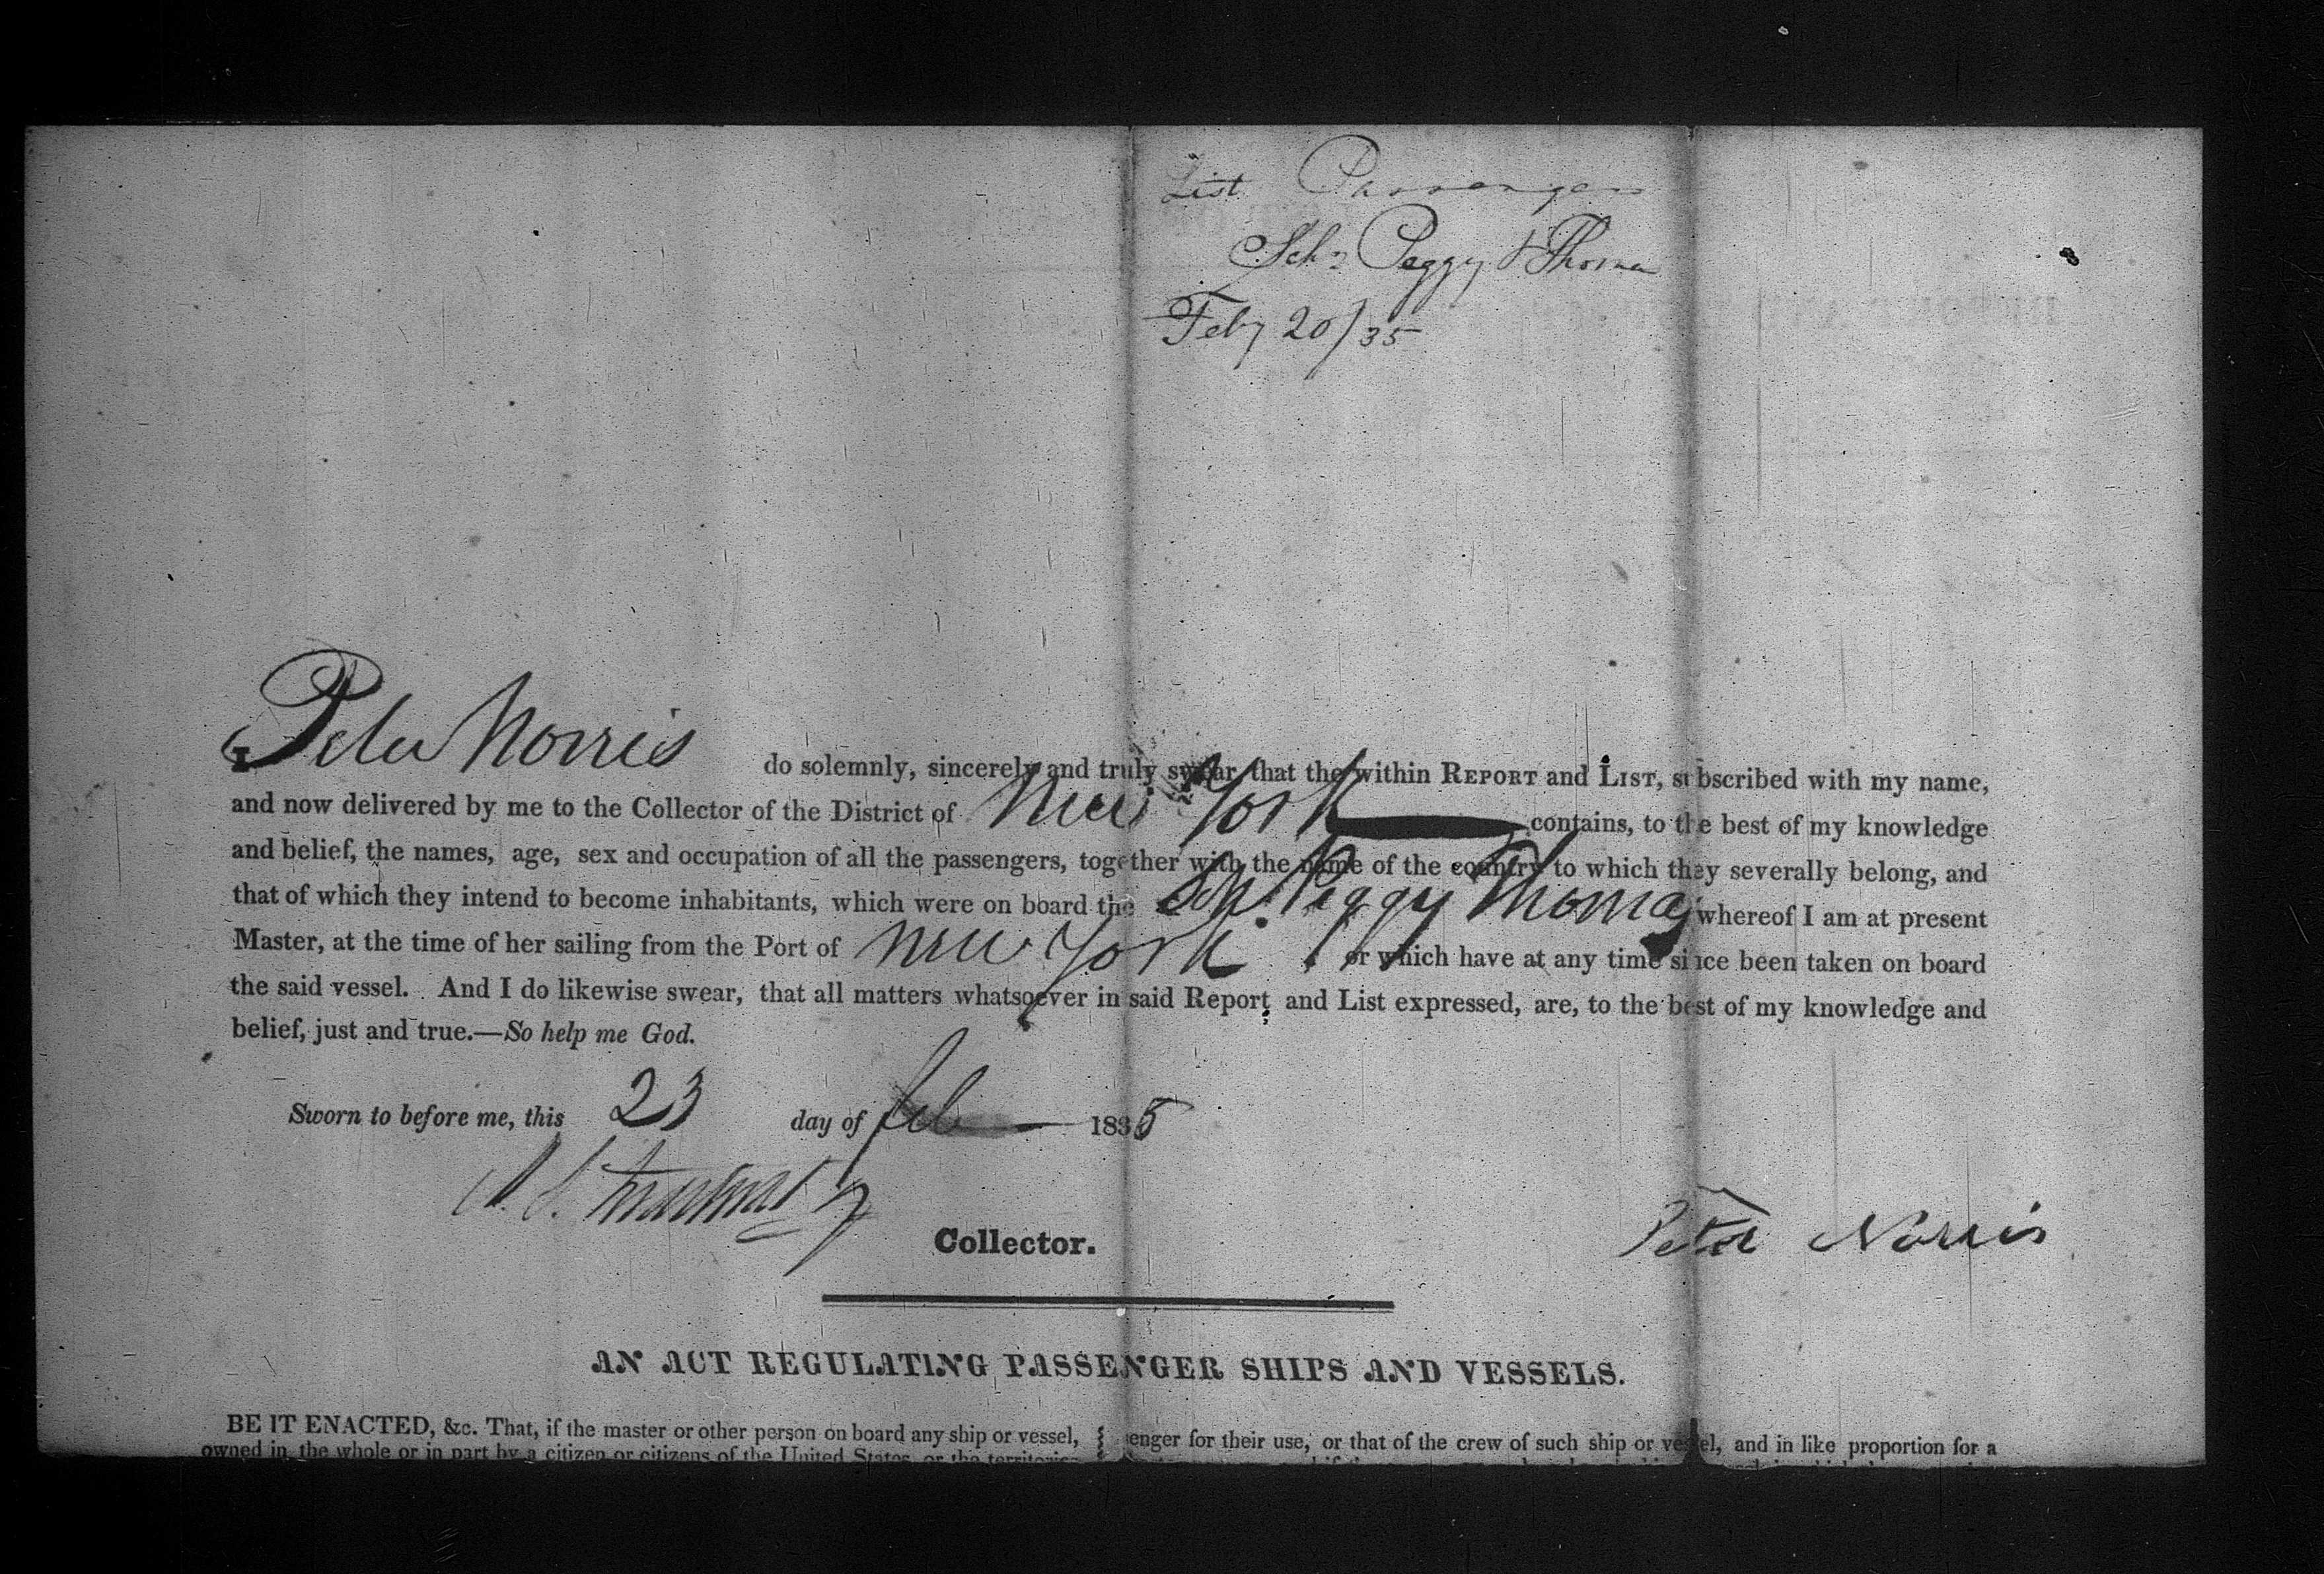 List Passengers
Schr Peggy & Thomas
Feby 20/35
I Peter Norris do solemnly, sincerely and truly swear, that the within REPORT and LIST, subscribed with my name,
and now delivered by me to the Collector of the District of New York contains, to the best of my knowledge
and belief, the names, age, sex and occupation of all the passengers, together with the name of the country to which they severally belong, and
that of which they intend to become inhabitants, which were on board the Schr. Peggy Thomas whereof I am at present
Master, at the time of her sailing from the Port of New York or which have at any time since been taken on board
the said vessel. And I do likewise swear, that all matters whatsoever in said Report and List expressed, are, to the best of my knowledge and
belief, just and true.—So help me God.
Sworn to before me, this 23 day of feb 1835
Collector.
Peter Norris
AN ACT REGULATING PASSENGER SHIPS AND VESSELS.
BE IT ENACTED, &c. That, if the master or other person on board any ship or vessel,
owned in the whole or in part by a citizen or citizens of the United States, or the territories
enger for their use, or that of the crew of such ship or vessel, and in like proportion for a